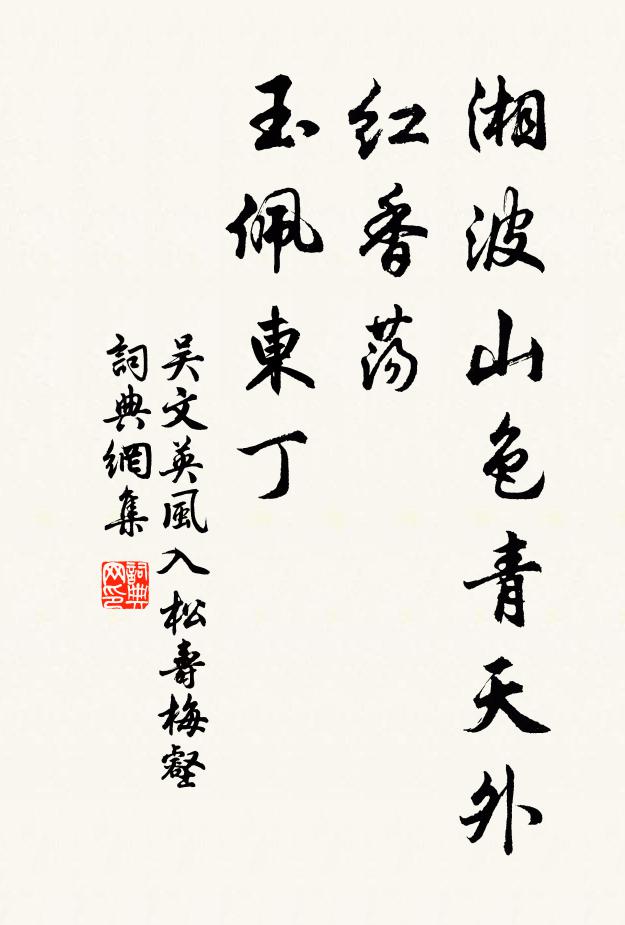 湘波山色青天外
紅香蕩
玉佩東丁
吴文英風入松壽梅壑
詞典網集
詞典网印